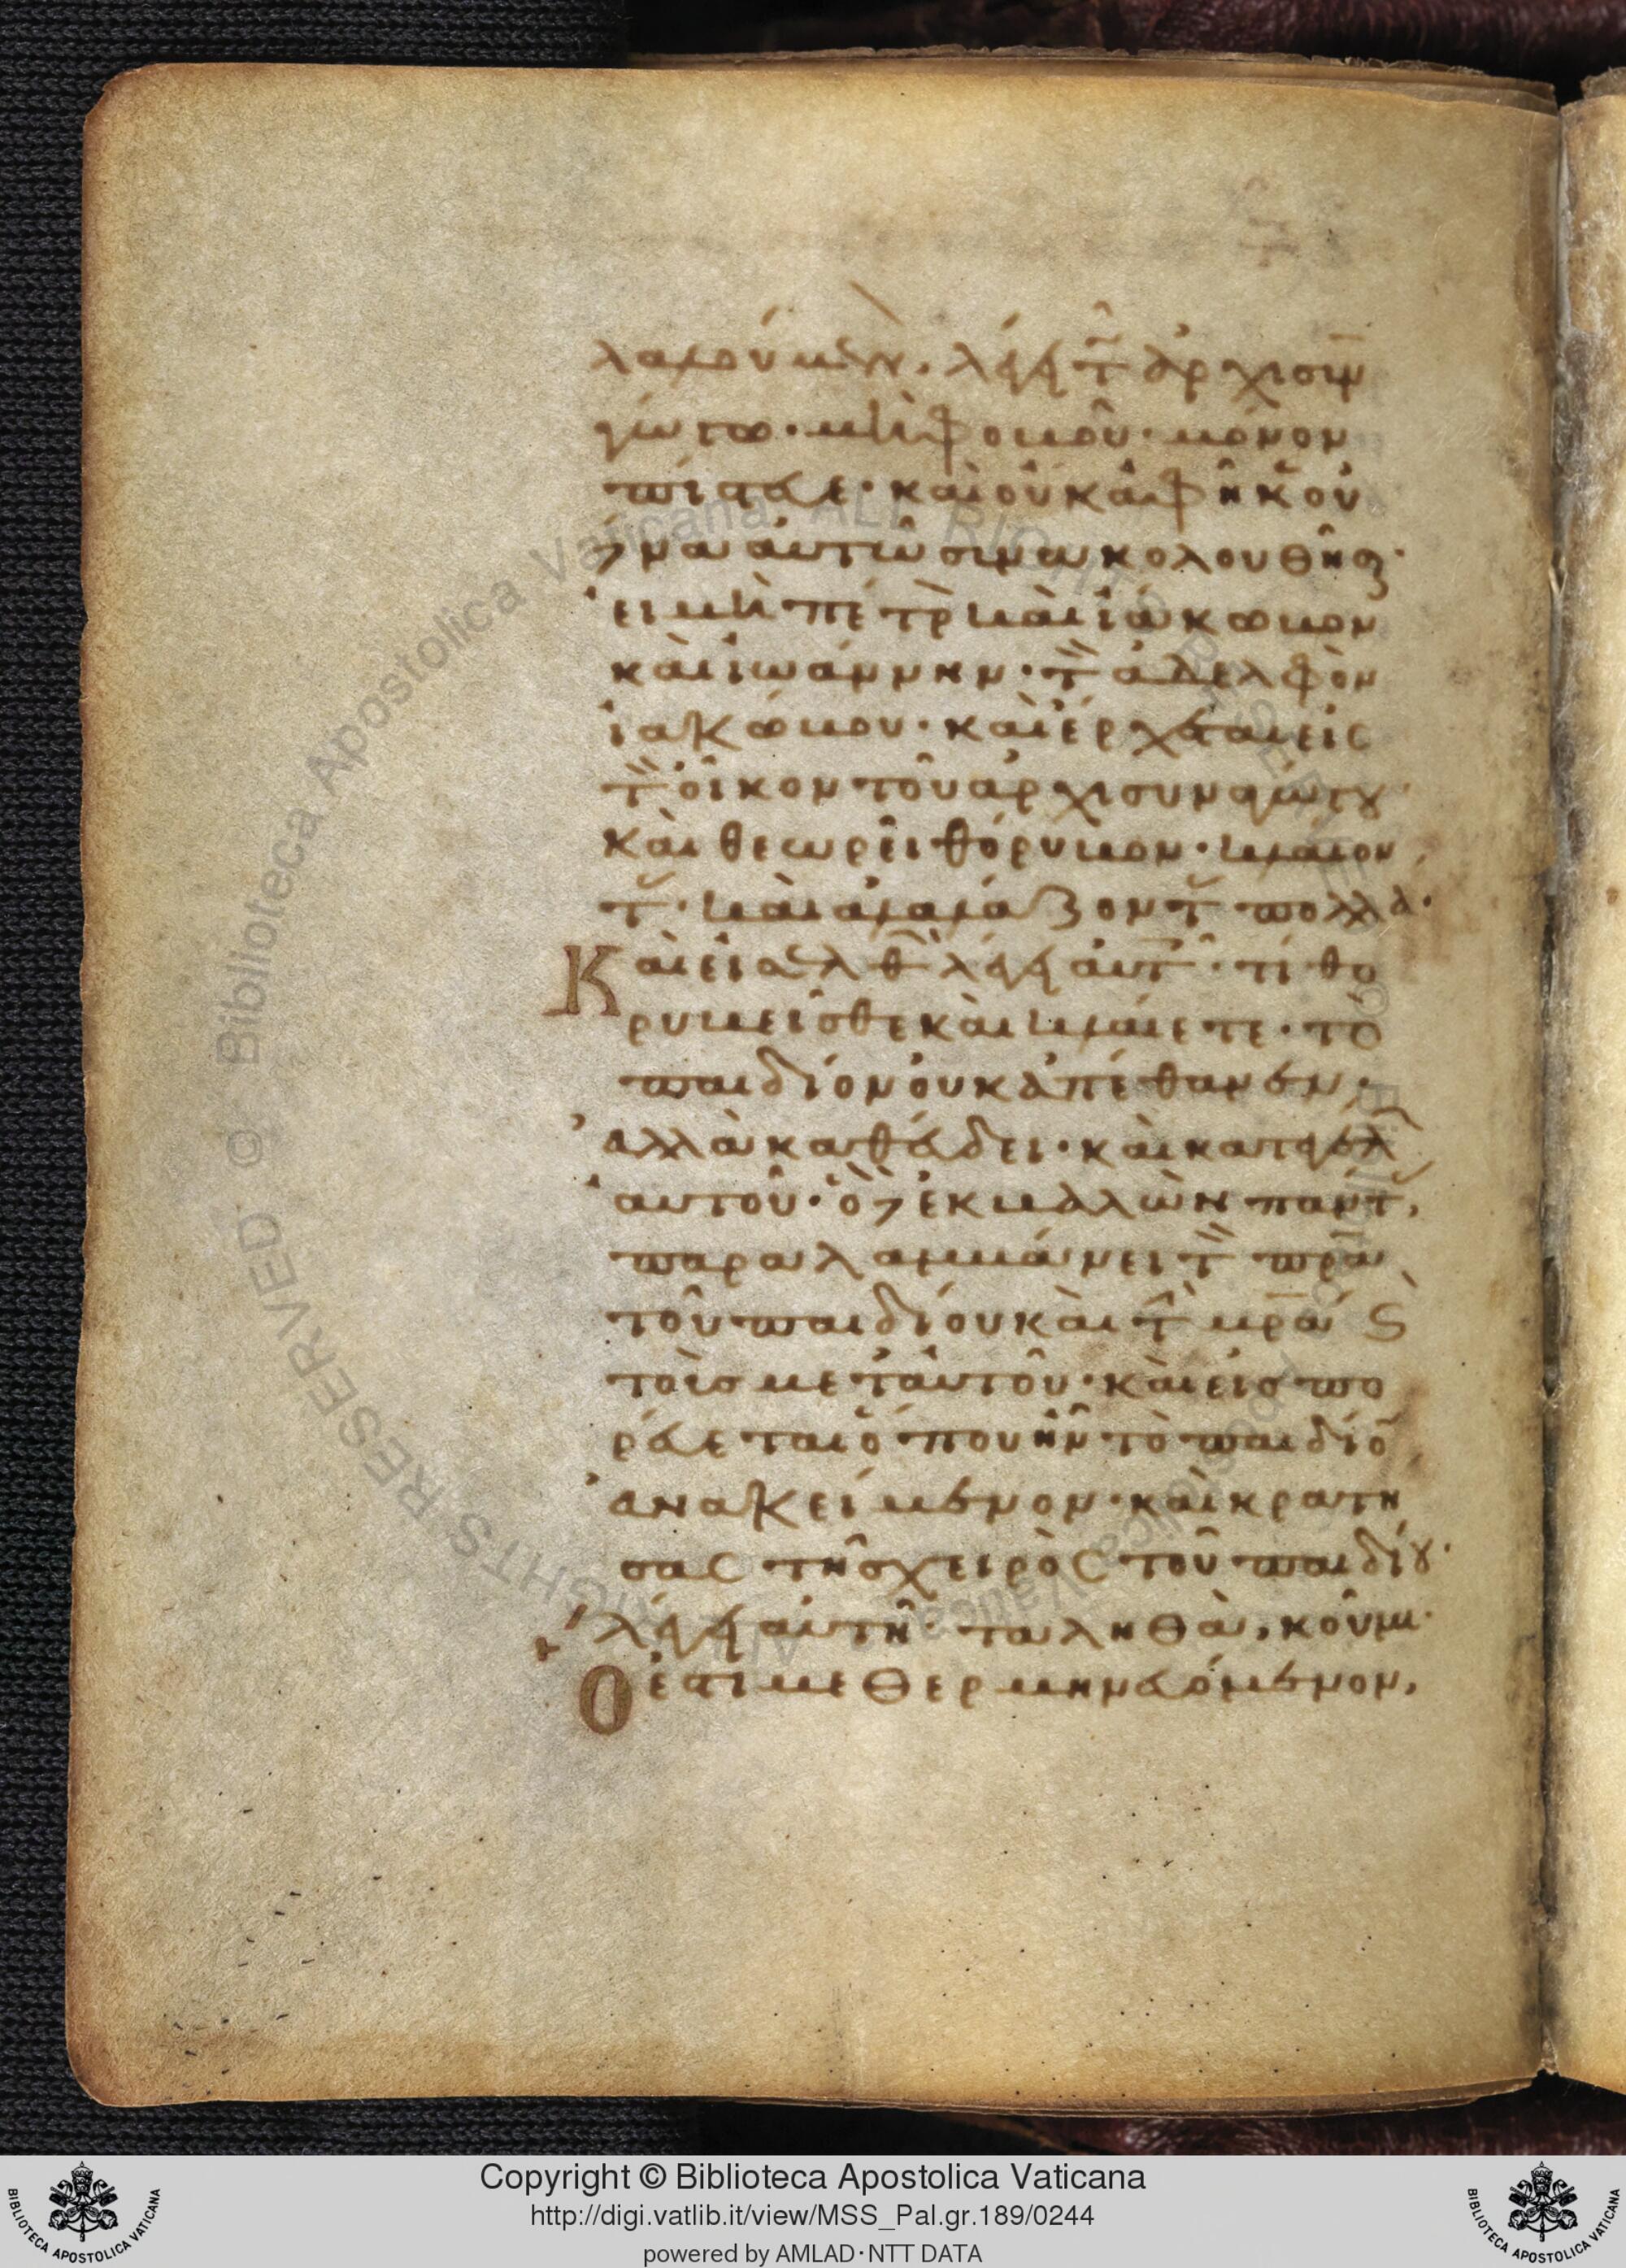 λαλούμενον, λέγει τῷ ἀρχισυνα
γώγω· μὴ φοβοῦ· μόνον
πίστευε· καὶ οὐκ ἀφῆκεν οὐ
δένα αὐτῶ συνακολουθῆσαι·
εἰ μὴ πέτρον καὶ ἰάκωβον
καὶ ἰωάννην· τὸν ἀδελφὸν
ἰακώβου· καὶ ἔρχεται εἰς
τὸν οἶκον τοῦ ἀρχισυναγώγου
καὶ θεωρεῖ θόρυβον· κλαίον
τας· καὶ ἀλαλάζοντας πολλά·
Καὶ εἰσελθὼν λέγει αὐτοῖς· τί θο
ρυβεῖσθε καὶ κλαίετε· τὸ
παιδίον οὐκ ἀπέθανεν,
ἀλλὰ καθεύδει· καὶ κατεγέλων
αὐτοῦ· ὁ δὲ ἐκβαλὼν πάντας,
παραλαμβάνει τὸν πρα
τοῦ παιδίου καὶ τὴν μρα καὶ
τοὺς μετ' αὐτοῦ· καὶ εἰσπο
ρεύεται ὅπου ἦν τὸ παιδίον
ἀνακείμενον· καὶ κρατή
σας τῆς χειρὸς τοῦ παιδίου·
λέγει αὐτῆ· ταληθὰ, κοῦμι·
Ὅ ἐστι μεθερμηνευόμενον,
Copyright © Biblioteca Apostolica Vaticana
http://digi.vatlib.it/view/MSS_Pal.gr.189/0244
powered by AMLAD·NTT DATA
BIBLIOTECA APOSTOLICA VATICANA
BIBLIOTECA APOSTOLICA VATICANA